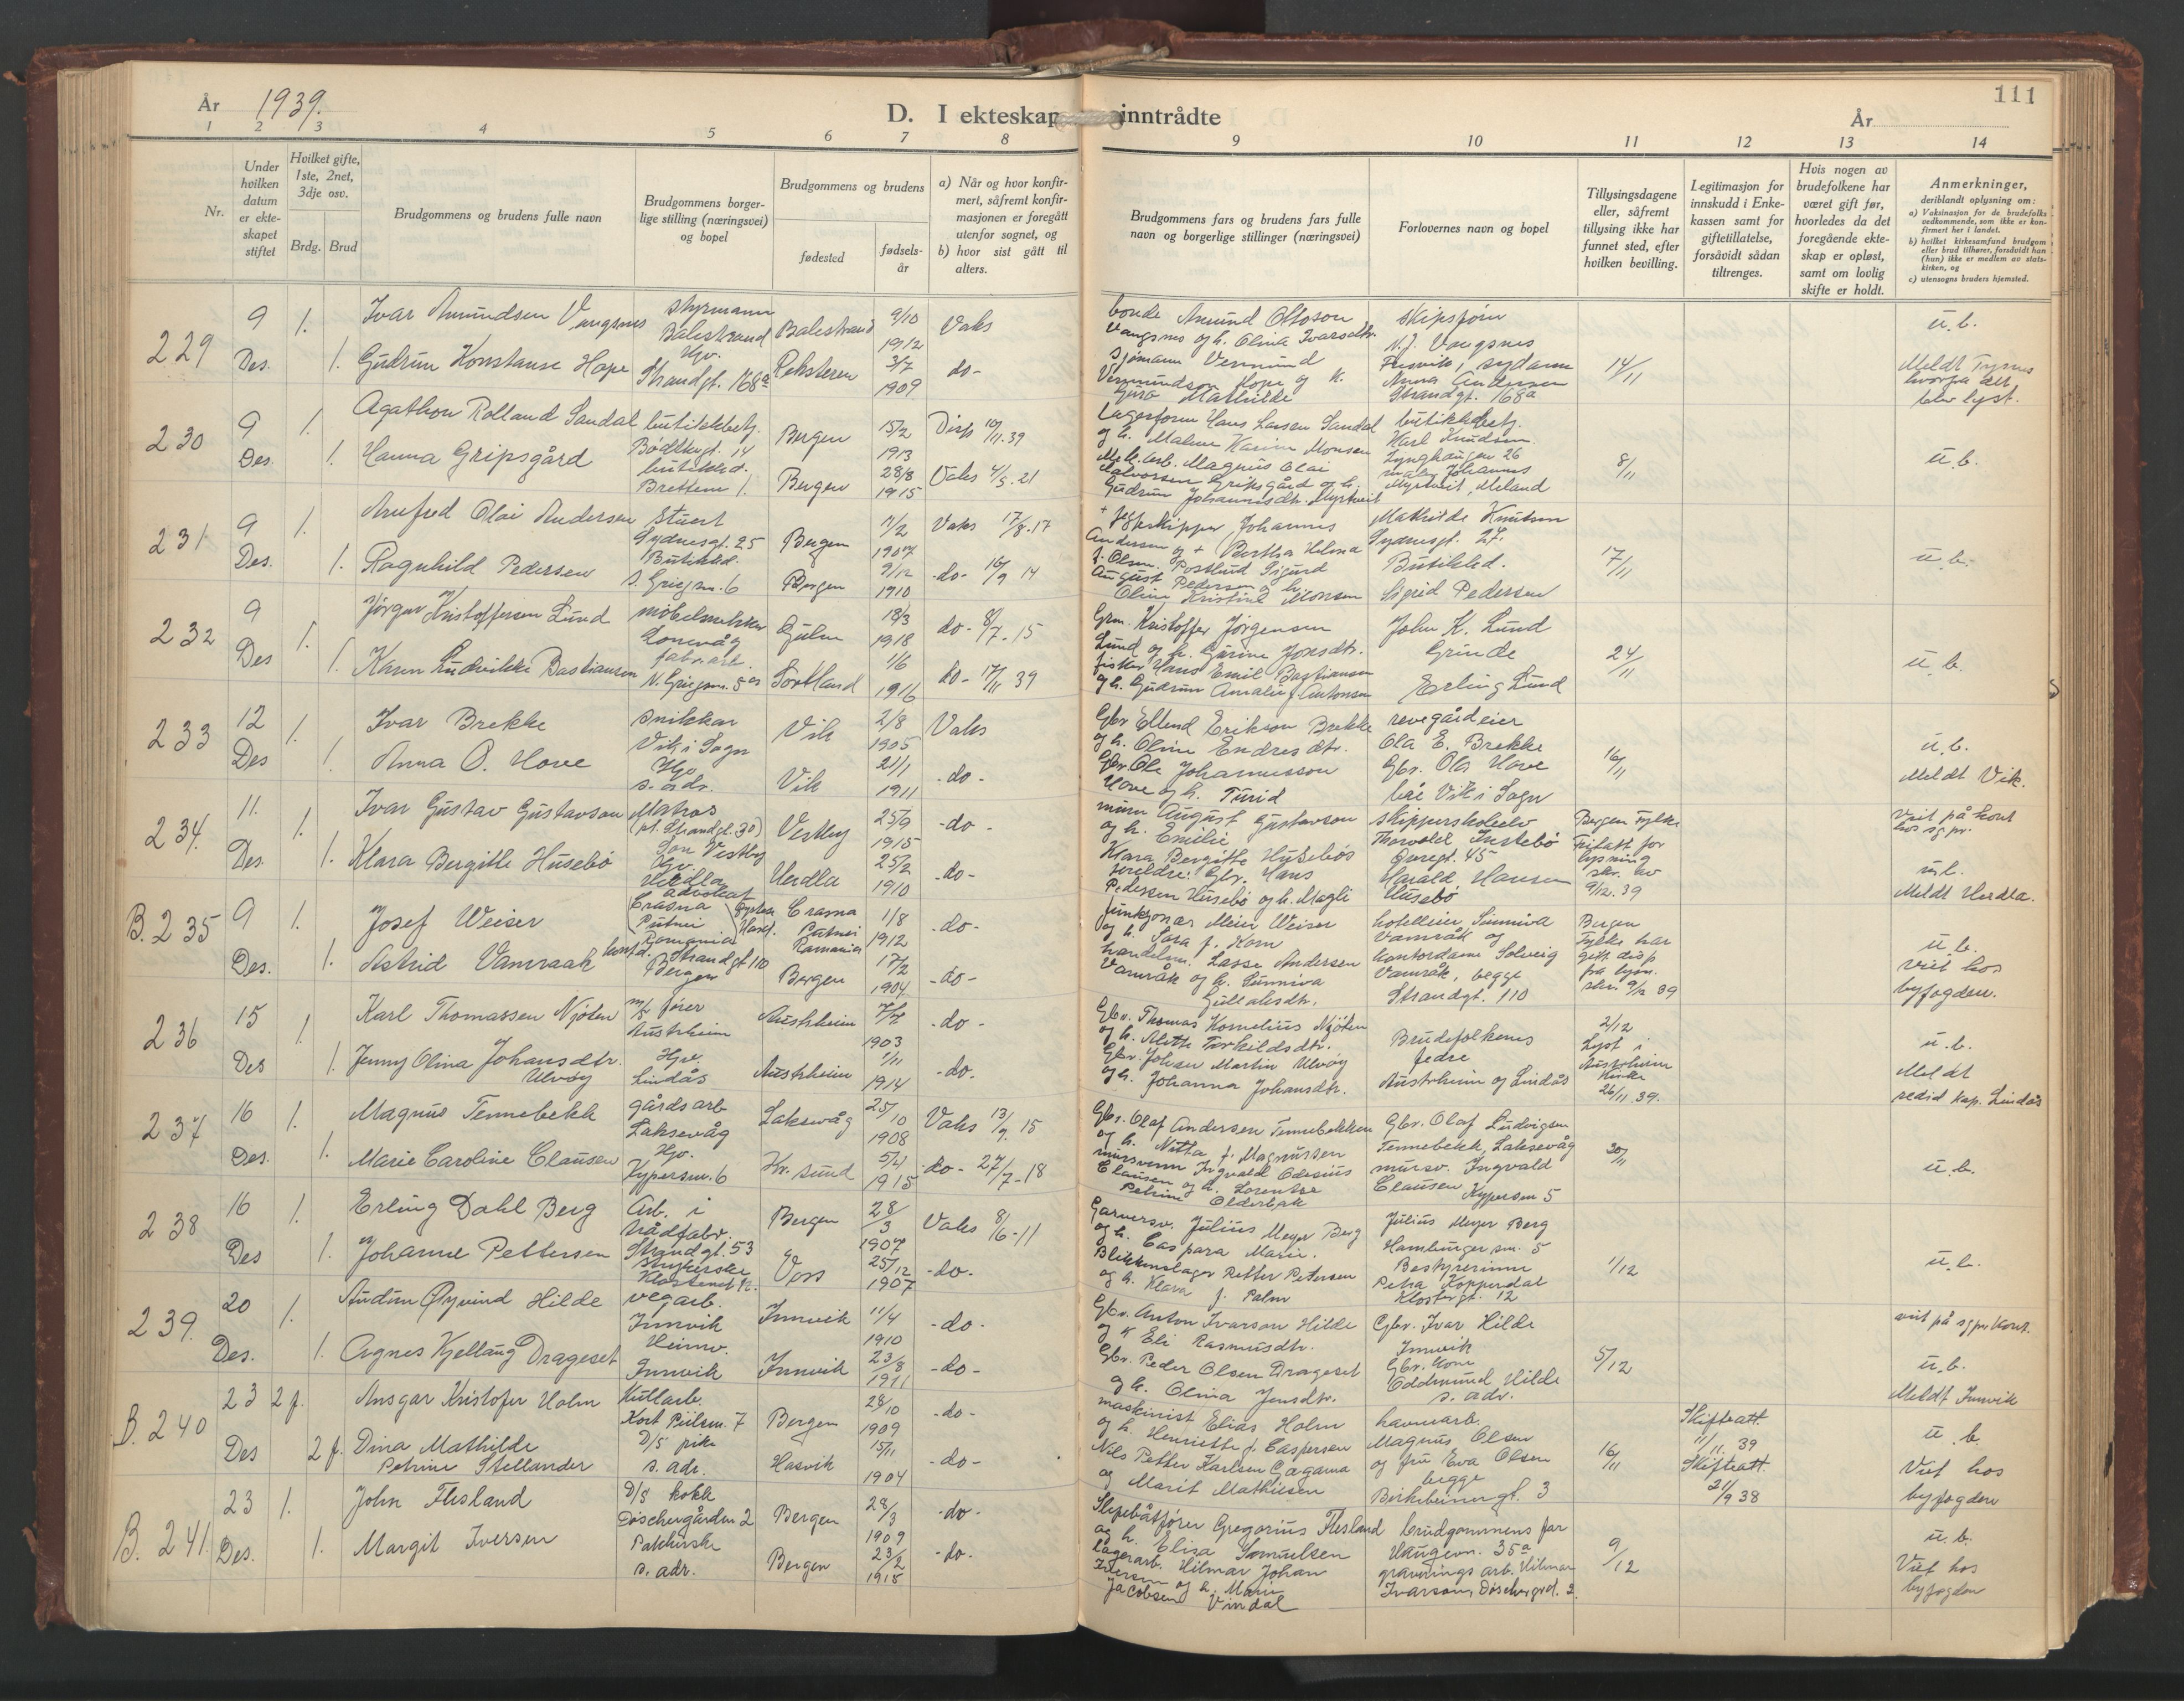 År 1939.
D. I ekteskap inntrådte
År
111
1 2 3 4 5 6 7 8 9 10 11 12 13 14
Nr.
Under hvilken datum er ekteskapet stiftet
Hvilket gifte, 1ste, 2net, 3dje osv.
Brdg. Brud
Brudgommens og brudens fulle navn
Brudgommens borgerlige stilling (næringsvei) og bopel
Brudgommens og brudens
fødested
fødselsår
a) Når og hvor konfirmert, såfremt konfirmasjonen er foregått utenfor sognet, og
b) hvor sist gått til alters.
Brudgommens fars og brudens fars fulle navn og borgerlige stillinger (næringsvei)
Forlovernes navn og bopel
Tillysingsdagene eller, såfremt tillysing ikke har funnet sted, efter hvilken bevilling.
Legitimasjon for innskudd i Enkekassen samt for giftetillatelse, forsåvidt sådan tiltrenges.
Hvis nogen av brudefolkene har været gift før, hvorledes da det foregående ekteskap er opløst, samt om lovlig skifte er holdt.
Anmerkninger, deriblandt oplysning om:
a) Vaksinasjon for de brudefolks vedkommende, som ikke er konfirmert her i landet.
b) hvilket kirkesamfund brudgom eller brud tilhører, forsåvidt han (hun) ikke er medlem av statskirken, og
c) utensogns bruders hjemsted.
229 9 Des. 1. 1.
Ivar Amundsen Vangsnes styrmann Balestrand Balestrand 9/10 1912 Vaks
Gudrun Konstanse Hope Hv. Strandgt. 168a Reksteren 3/7 1909 do-
bonde Amund Ottoson Vangsnes og h. Olina Ivarsdtr.
sjømann Vermund Vermundson Hope og k. Mathilde
skipsfører N.J. Vangsnes
Anna Andersen Strandgt. 168a
14/11
u.b.
Meldt Tysnes
blev lyst.
230 9 Des. 1. 1.
Agathon Rolland Sandal butikkbetj. Bødkergt. 14 Bergen 15/2 1913 Disp 10/11.39
Hanna Gripsgård butikkd. Bretten 1. Bergen 28/8 1915 Vaks 4/5.21
Lagerform Hans Larsen Sandal og h. Malene Karine Monsen
Mek.arb. Magnus Olai Halvorsen Gripsgård og h. Gudrun Johannesdtr. Myrtveit
butikkbetj. Karl Knudsen Lynghaugen 26
maler Johannes Myrtveit, Meland
8/11
u.b.
231 9 Des. 1. 1.
Arnfred Olai Andersen stuert Sydnesgt. 25 Bergen 11/2 1907 Vaks 17/8.17
Ragnhild Pedersen Butikkd. Bergen 9/12 1910 -do- 16/9 14
+ Jekteskipper Johannes Andersen og + Bertha Helena f. Olsen.
Postbud Sigurd August Pedersen og h. Oline Kristine Monsen
Mathilde Knutsen Sydnesgt. 27.
Butikkd. Sigrid Pedersen
17/11
u.b.
232 9 Des 1. 1.
Jørgen Kristoffersen Lund møbelsnekker Lonevåg Gulen 18/3 1918 do- 8/7.15
Karen Ludvikke Bastiansen fabr.arb. N. Griegsm. 5 Sortland 1/6 1916 do- 17/11 39
Grm. Kristoffer Jørgensen Lund og h. Gurine Jonsdtr.
fisker Hans Emil Bastiansen og h. Gudrun Amalie f. Antonsen
John K. Lund Grinde
Erling Lund
24/11
u.b.
233 12 Des 1. 1.
Ivar Brekke snikkar Vik i Sogn Vik 2/8 1905 Vaks
Anna O. Hove Hv. s. adr. Vik 21/1 1911 -do-
Gbr Ellend Erikson Brekke og h. Oline Endresdtr.
Gbr Ole Johannesson Hove og h. Turid
revegårdeier Ola E. Brekke
Gbr. Ola Hove båe Vik i Sogn
16/11
u.b.
Meldt Vik.
234. 11. Des. 1. 1.
Ivar Gustav Gustavson Matros (pt. Strandgt. 30) Son Vestby Vestby 25/9 1915 -do-
Klara Bergitte Husebö Hv. Herdla Herdla 25/2 1910 -do-
murer August Gustavson og h. Emilie
Klara Bergitte Husebös foreldre: Gbr. Hans Pedersen Husebö og h. Magli
skipperskoleelev Thorvald Instebö Øvregt. 45
Harald Hansen Husebö
Bergen Fylke Fritatt for lysning skr. av 9/12.39
Viet på kont hos sgpr.
u.b.
Meldt Herdla.
B. 235 9 Des. 1. 1.
Josef Weiser advokat Crasna Putnei Romania Crasna Putnei Romania 1/8 1912 -do-
Astrid Vamraak kontd. Strandgt 110 Bergen Bergen 17/2 1904 -do-
funksjonær Meier Weiser og h. Sara f. Korn
handelsm. Lasse Andersen Vamråk og h. Sunniva Gullaksdtr.
hotelleier Sunniva Vamråk og kontordame Solveig Vamråk, begge Strandgt. 110
Bergen Fylke har gitt disp fra lysn. skr. 9/12 39
u.b.
viet hos byfogden.
236 15 Des 1. 1.
Karl Thomassen Njøten m/k fører Austrheim Austrheim 7/7 1903 -do-
Jenny Olina Johansdtr. Ulvøy Hv. Lindås Austrheim 1/11 1914 -do.
Gbr. Thomas Kornelius Njøten og h. Alette Torkildsdtr.
Gbr. Johan Martin Ulvøy og h. Johanna Johansdtr.
Brudefolkenes fedre Austrheim og Lindås
2/12 Lyst i Austrheim kirke 26/11.39.
u.b.
Meldt
resid kap. Lindås
237 16 Des. 1. 1.
Magnus Tennebekk gårdsarb Laksevåg Laksevåg 25/10 1908 Vaks 13/9.15
Marie Caroline Clausen Hv. Kypersm. 6 Kr. sund 5/4 1915 -do- 27/7-18
Gbr. Olaf Andersen Tennebekken og h. Nitha f. Magnussen
mursvenn Ingvald Odenius Clausen og h. Lorentse Petrine Olderbak
Gbr. Olaf Ludvigsen Tennebekk, Laksevåg
mursv. Ingvald Clausen Kypersm 5
30/11
u.b.
238 16 Des 1. 1.
Erling Dahl Berg Arb. i trådfabr. Strandgt. 53 Bergen 28/3 1907 Vaks 8/6-11
Johanne Pettersen strykerske Voss 25/12 1907 -do-
Garversv. Julius Meyer Berg og h. Caspara Marie.
Blikkenslager Petter Petersen og h. Klara f. Palm
Julius Meyer Berg Hamburgersm. 5
Bestyrerinne Petra Kopperdal Klostergt. 12
1/12
u.b.
239. 20 Des. 1. 1.
Audun Øyvind Hilde vegarb. Innvik Innvik 11/4 1910 -do-
Agnes Kjellaug Drageset Heimv. Innvik Innvik 23/8 1911 -do-
Gbr. Anton Ivarson Hilde og k Eli Rasmusdtr.
Gbr. Peder Olsen Drageset og h. Olina Jensdtr.
Gbr. Ivar Hilde Innvik
Gbr. kone Oddmund Hilde s. adr.
5/12
viet på sgpr kont.
u.b.
Meldt Innvik
B. 240 23 Des 2 f. 2 f.
Ansgar Kristofer Holm Kullarb. Kort Piilsm. 7 Bergen 28/10 1909 -do-
Dina Mathilde Petrine Stellander D/S pike s. adr. Hasvik 15/11 1904 -do-
maskinist Elias Holm og h. Henriette f. Caspersen
Nils Petter Karlsen Gaegama og Marit Mathiesen
havnearb. Magnus Olsen og fru Eva Olsen begge Birkebeinergt. 3
16/11
Skifteatt. 11/11.39
Skifteatt. 21/9 38
u.b.
Viet hos byfogden
B. 241. 23 Des. 1. 1.
John Flesland D/S kokk Døschergården 2 Bergen 28/3 1909 -do-
Margit Iversen Pakkerske s. adr. Bergen 23/2 1915 -do.
Slepebåtfører Gregorius Flesland og h. Elisa Samuelsen
Lagerarb. Hilmar Johan Iversen og h. Marie Jacobsen Vindal
brudgommens far Haugevn. 35a
gravnings arb. Hilmar Ivarson, Døschergrd. 2
9/12
u.b.
Viet hos byfogden